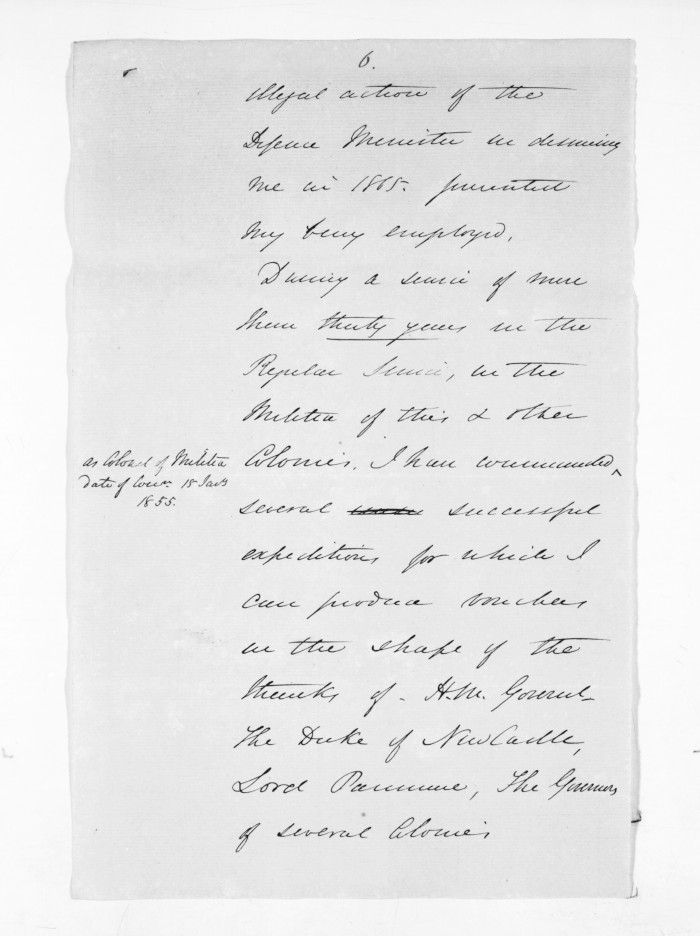 6.
illegal action of the
Defence Minister in dismissing
me in 1865. prevented
my being employed.
During a service of more
than thirty years in the
Regular Service, in the
Militia of this & other
Colonies, I have commanded,
as Colonel of Militia
date of Comn. 18 Jany
1855.
several successful
expeditions for which I
can produce vouchers
in the shape of the
thanks of - H.M. Governt-
The Duke of NewCastle,
Lord Panmure, The Governors
of several Colonies